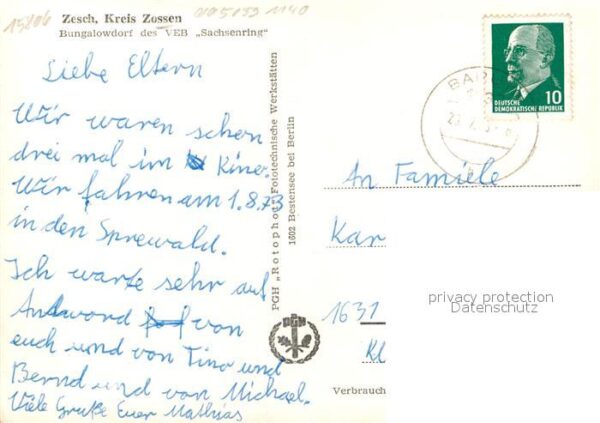 15806
005153 1140
Zesch, Kreis Zossen
Bungalowdorf des VEB „Sachsenring"
Liebe Eltern
Wir waren schon
drei mal im Kino.
Wir fahren am 1.8.73
in den Sprewald.
Ich warte sehr auf
Antword von
euch und von Tino und
Bernd und von Michael.
Viele Gruße Euer Mathias
PGH „Rotophot" Fototechnische Werkstätten
1602 Bestensee bei Berlin
PGH
DEUTSCHE
DEMOKRATISCHE REPUBLIK
10
An Familie
Kar
1631
Kl
privacy protection
Datenschutz
Verbrauch